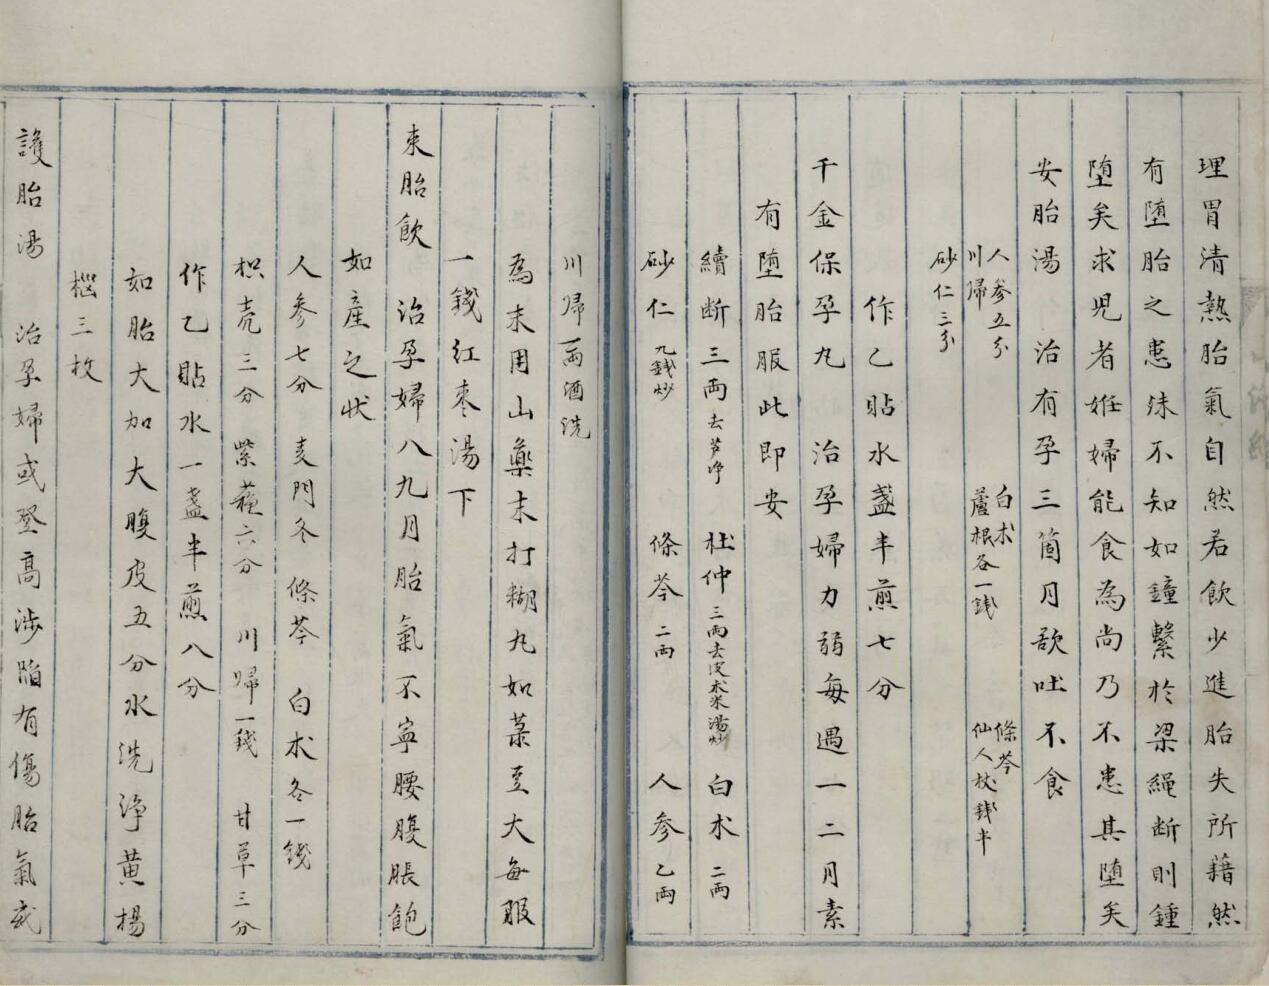 理胃清熱胎氣自然若飲少進胎失所藉然
有墮胎之患殊不知如鐘繫於梁繩斷則鍾
墮矣求児者姙婦能食為尚乃不患其墮矣
安胎湯 治有孕三箇月歆吐不食
人參五分 白术 條芩
川歸 蘆根各一錢 仙人杖錢半
砂仁三分
作乙貼水盞半煎七分
千金保孕丸 治孕婦力弱每遇一二月素
有墮胎服此即安
續斷三両去芦净 杜仲三両去皮木米湯炒 白术二両
砂仁九錢炒 條芩二両 人參乙両
川歸一両酒洗
為末用山藥末打糊丸如菉豆大每服
一錢紅棗湯下
束胎飲 治孕婦八九月胎氣不寧腰腹脹飽
如産之状
人參七分 麦門冬 條芩 白术各一錢
枳壳三分 紫蘓六分 川歸一錢 甘草三分
作乙貼水一盞半煎八分
如胎大加大腹皮五分水洗淨黄楊
樶三枚
護胎湯 治孕婦或登高渉險有傷胎氣或